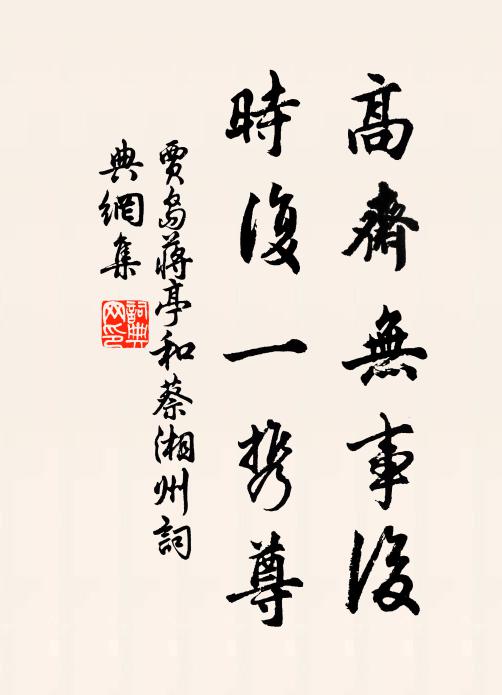 高齋無事後
時復一携尊
賈島蔣亭和蔡湘州詞
典網集
詞典網印